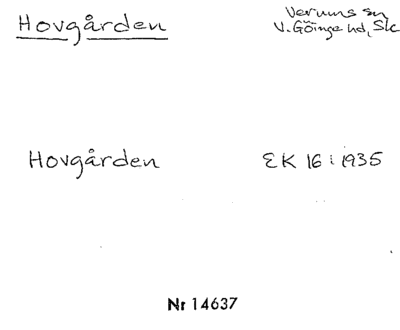 Hovgården
Verums sn
V. Göinge hd, Sk
Hovgården
EK 16 : 1935
Nr 14637